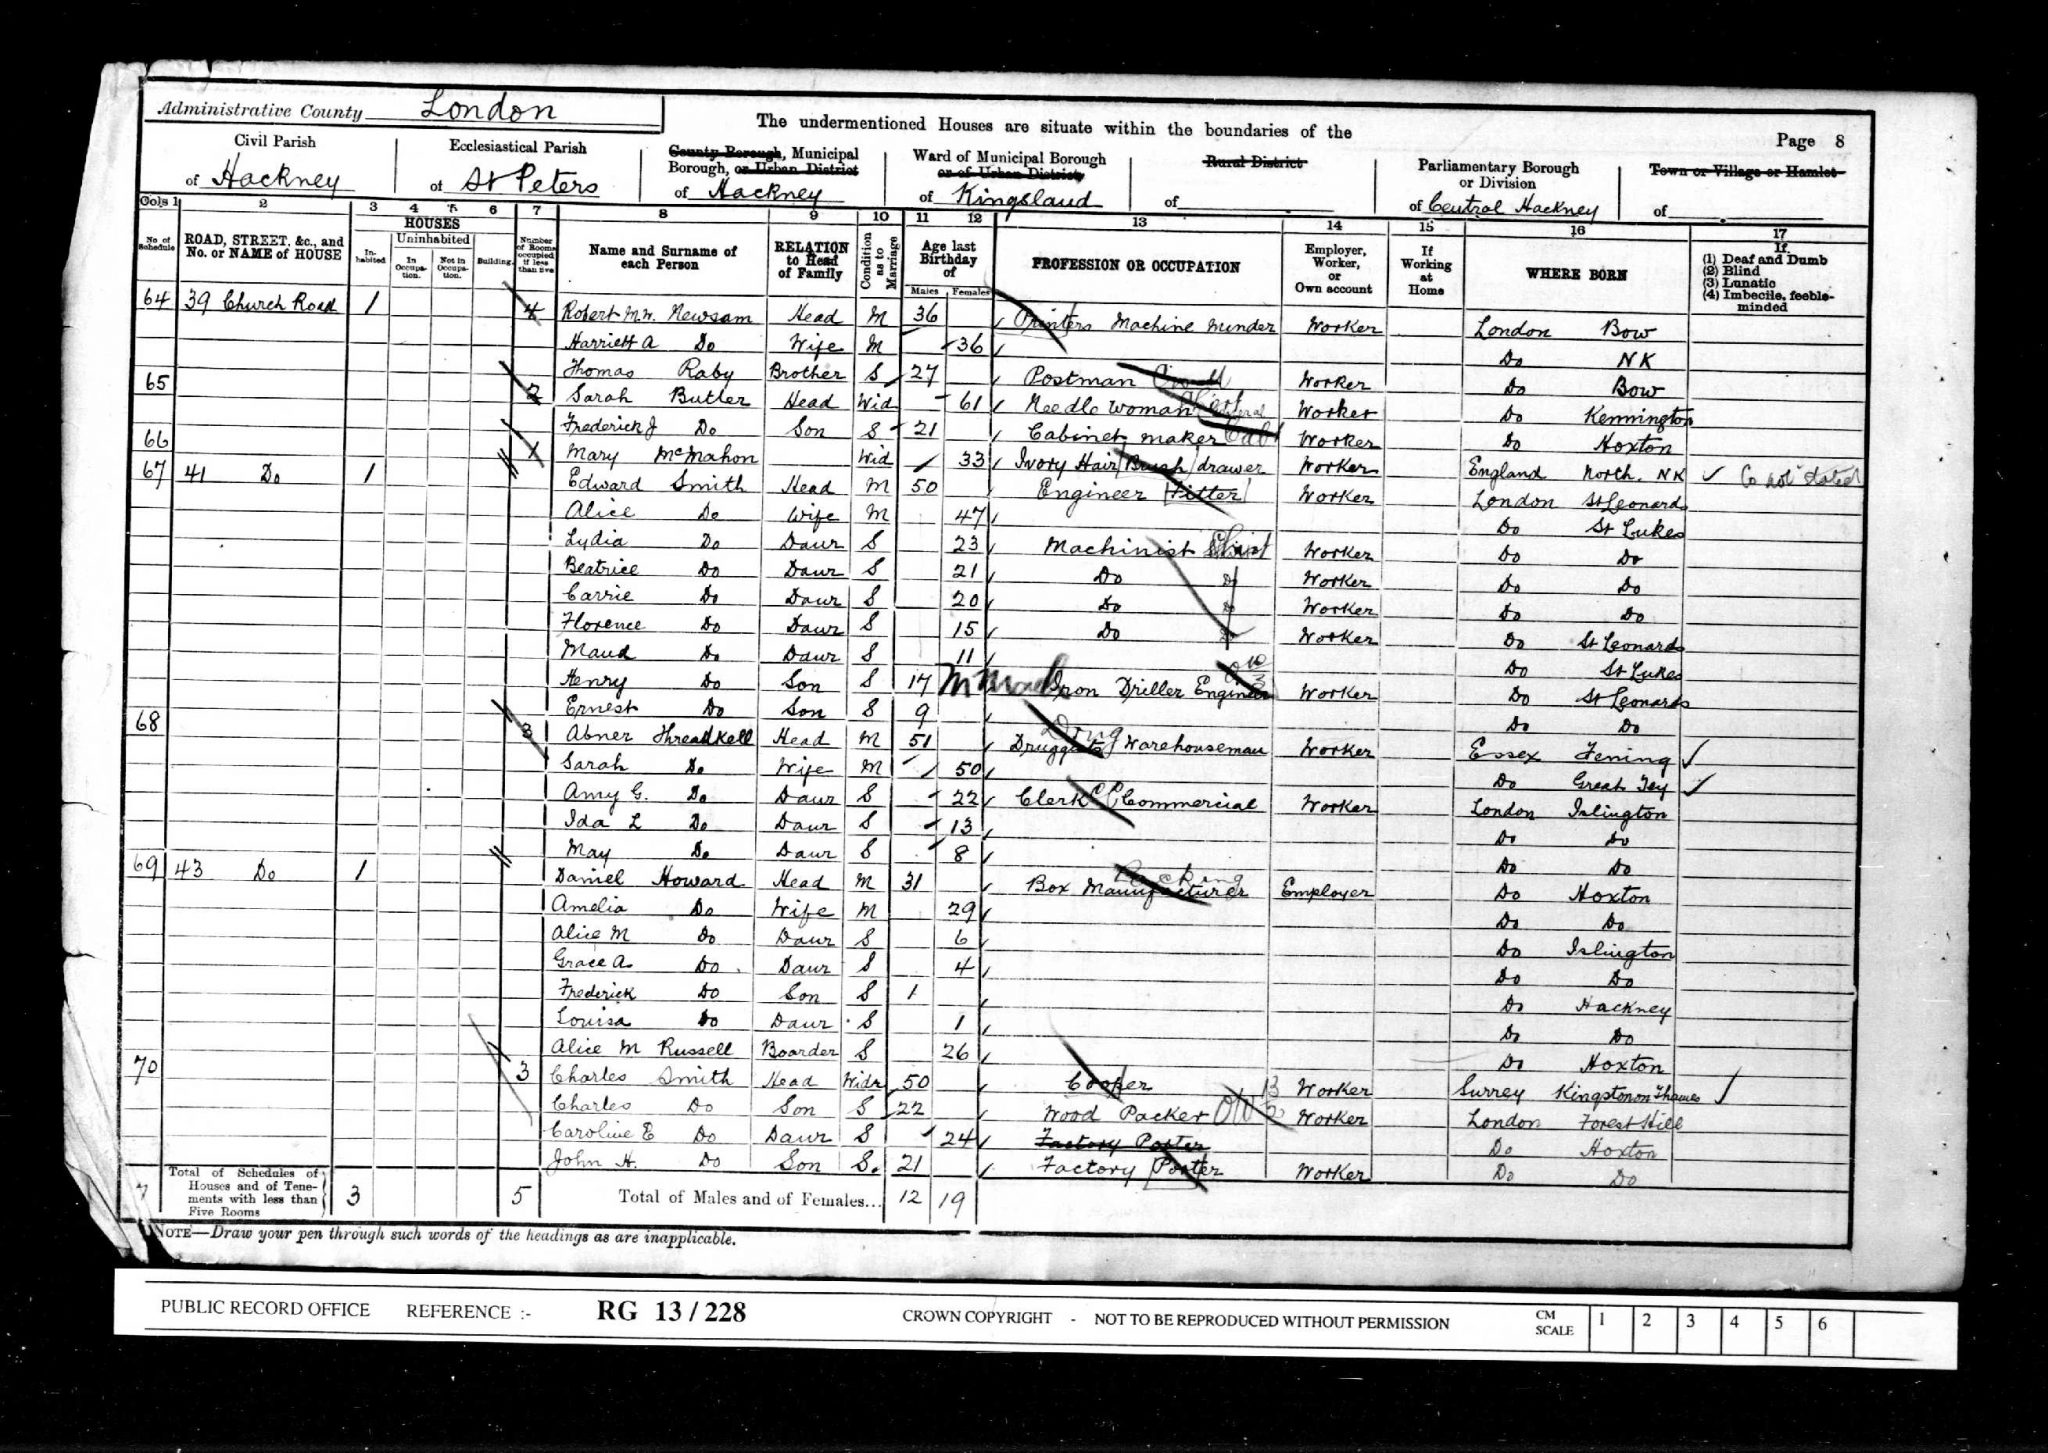 Administrative County London
The undermentioned Houses are situate within the boundaries of the
Page 8
Civil Parish of Hackney
Ecclesiastical Parish of St Peters
County Borough, Municipal Borough, or Urban District of Hackney
Ward of Municipal Borough or of Urban District of Kingsland
Rural District of
Parliamentary Borough or Division of Central Hackney
Town or Village or Hamlet of
Cols 1 2 3 4 5 6 7 8 9 10 11 12 13 14 15 16 17
No. of Schedule
ROAD, STREET, &c., and No. or NAME of HOUSE
HOUSES
Inhabited
Uninhabited
In Occupation.
Not in Occupation.
Building.
Number of Rooms occupied if less than five
Name and Surname of each Person
RELATION to Head of Family
Condition as to Marriage
Age last Birthday of
Males Females
PROFESSION OR OCCUPATION
Employer, Worker, or Own account
If Working at Home
WHERE BORN
If (1) Deaf and Dumb (2) Blind (3) Lunatic (4) Imbecile, feeble-minded
64 39 Church Road 1 4 Robert M.W. Newsam Head M 36 Printers Machine Minder Worker London Bow
Harriett A Do Wife M 36 Do NK
Thomas Raby Brother S 27 Postman Worker Do Bow
65 2 Sarah Butler Head Wid 61 Needle Woman Worker Do Kennington
Frederick J Do Son S 21 Cabinet maker Worker Do Hoxton
66 1 Mary McMahon Wid 33 Ivory Hair Brush drawer Worker England North. NK Co not stated
67 41 Do 1 Edward Smith Head M 50 Engineer Fitter Worker London St Leonards
Alice Do Wife M 47 Do St Lukes
Lydia Do Daur S 23 Machinist Shirt Worker Do Do
Beatrice Do Daur S 21 Do Do Worker Do Do
Carrie Do Daur S 20 Do Do Worker Do Do
Florence Do Daur S 15 Do Do Worker Do St Leonards
Maud Do Daur S 11 Do St Lukes
Henry Do Son S 17 Iron Driller Engineer Worker Do St Leonards
Ernest Do Son S 9 Do Do
68 3 Abner Threadkell Head M 51 Druggists Warehouseman Worker Essex Fening
Drug
Sarah Do Wife M 50 Do Great Tey
Amy G. Do Daur S 22 Clerk Commercial Worker London Islington
Ida L Do Daur S 13 Do Do
May Do Daur S 8 Do Do
69 43 Do 1 Daniel Howard Head M 31 Box Manufacturer Employer Do Hoxton
Packing
Amelia Do Wife M 29 Do Do
Alice M Do Daur S 6 Do Islington
Grace A. Do Daur S 4 Do Do
Frederick Do Son S 1 Do Hackney
Louisa Do Daur S 1 Do Do
Alice M Russell Boarder S 26 Do Hoxton
70 3 Charles Smith Head Widr 50 Cooper Worker Surrey Kingston on Thames
Charles Do Son S 22 Wood Packer Worker London Forest Hill
Caroline E Do Daur S 24 Factory Porter Do Hoxton
John H. Do Son S. 21 Factory Porter Worker Do Do
7 Total of Schedules of Houses and of Tenements with less than Five Rooms 3 5 Total of Males and of Females... 12 19
NOTE—Draw your pen through such words of the headings as are inapplicable.
PUBLIC RECORD OFFICE REFERENCE :- RG 13 / 228 CROWN COPYRIGHT - NOT TO BE REPRODUCED WITHOUT PERMISSION CM SCALE 1 2 3 4 5 6